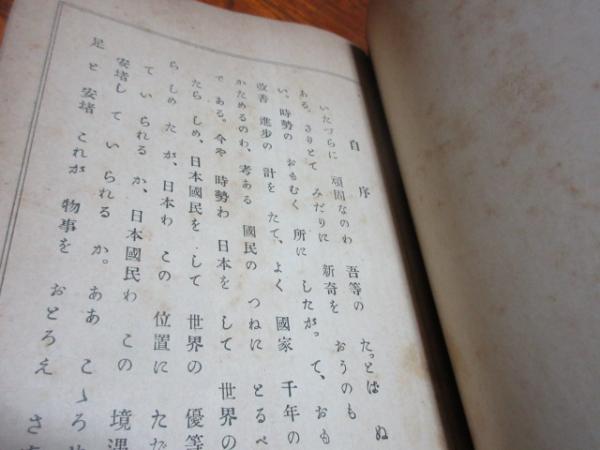 自序
いたづらに 頑固なのわ 吾等の たっとばぬ
ある。さりとて みだりに 新奇を おうのも
い。時勢の おもむく 所に したがって、おも
改善 進歩の 計を たて、よく 國家 千年の
かためるのわ、考ある 國民の つねに とるべ
で ある。今や 時勢わ 日本を して 世界の
たら しめ、日本國民を して 世界の 優等
ら しめ たが、日本わ この 位置に ただ
て いられる か、日本國民わ この 境遇
安堵して いられる か。ああ こゝろ
足 と 安堵 これが 物事を おとろえ さ